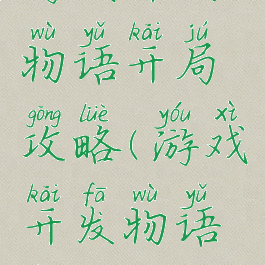 wù yǔ kāi jú
物语开局
gōng lüè yóu xì
攻略(游戏
kāi fā wù yǔ
开发物语